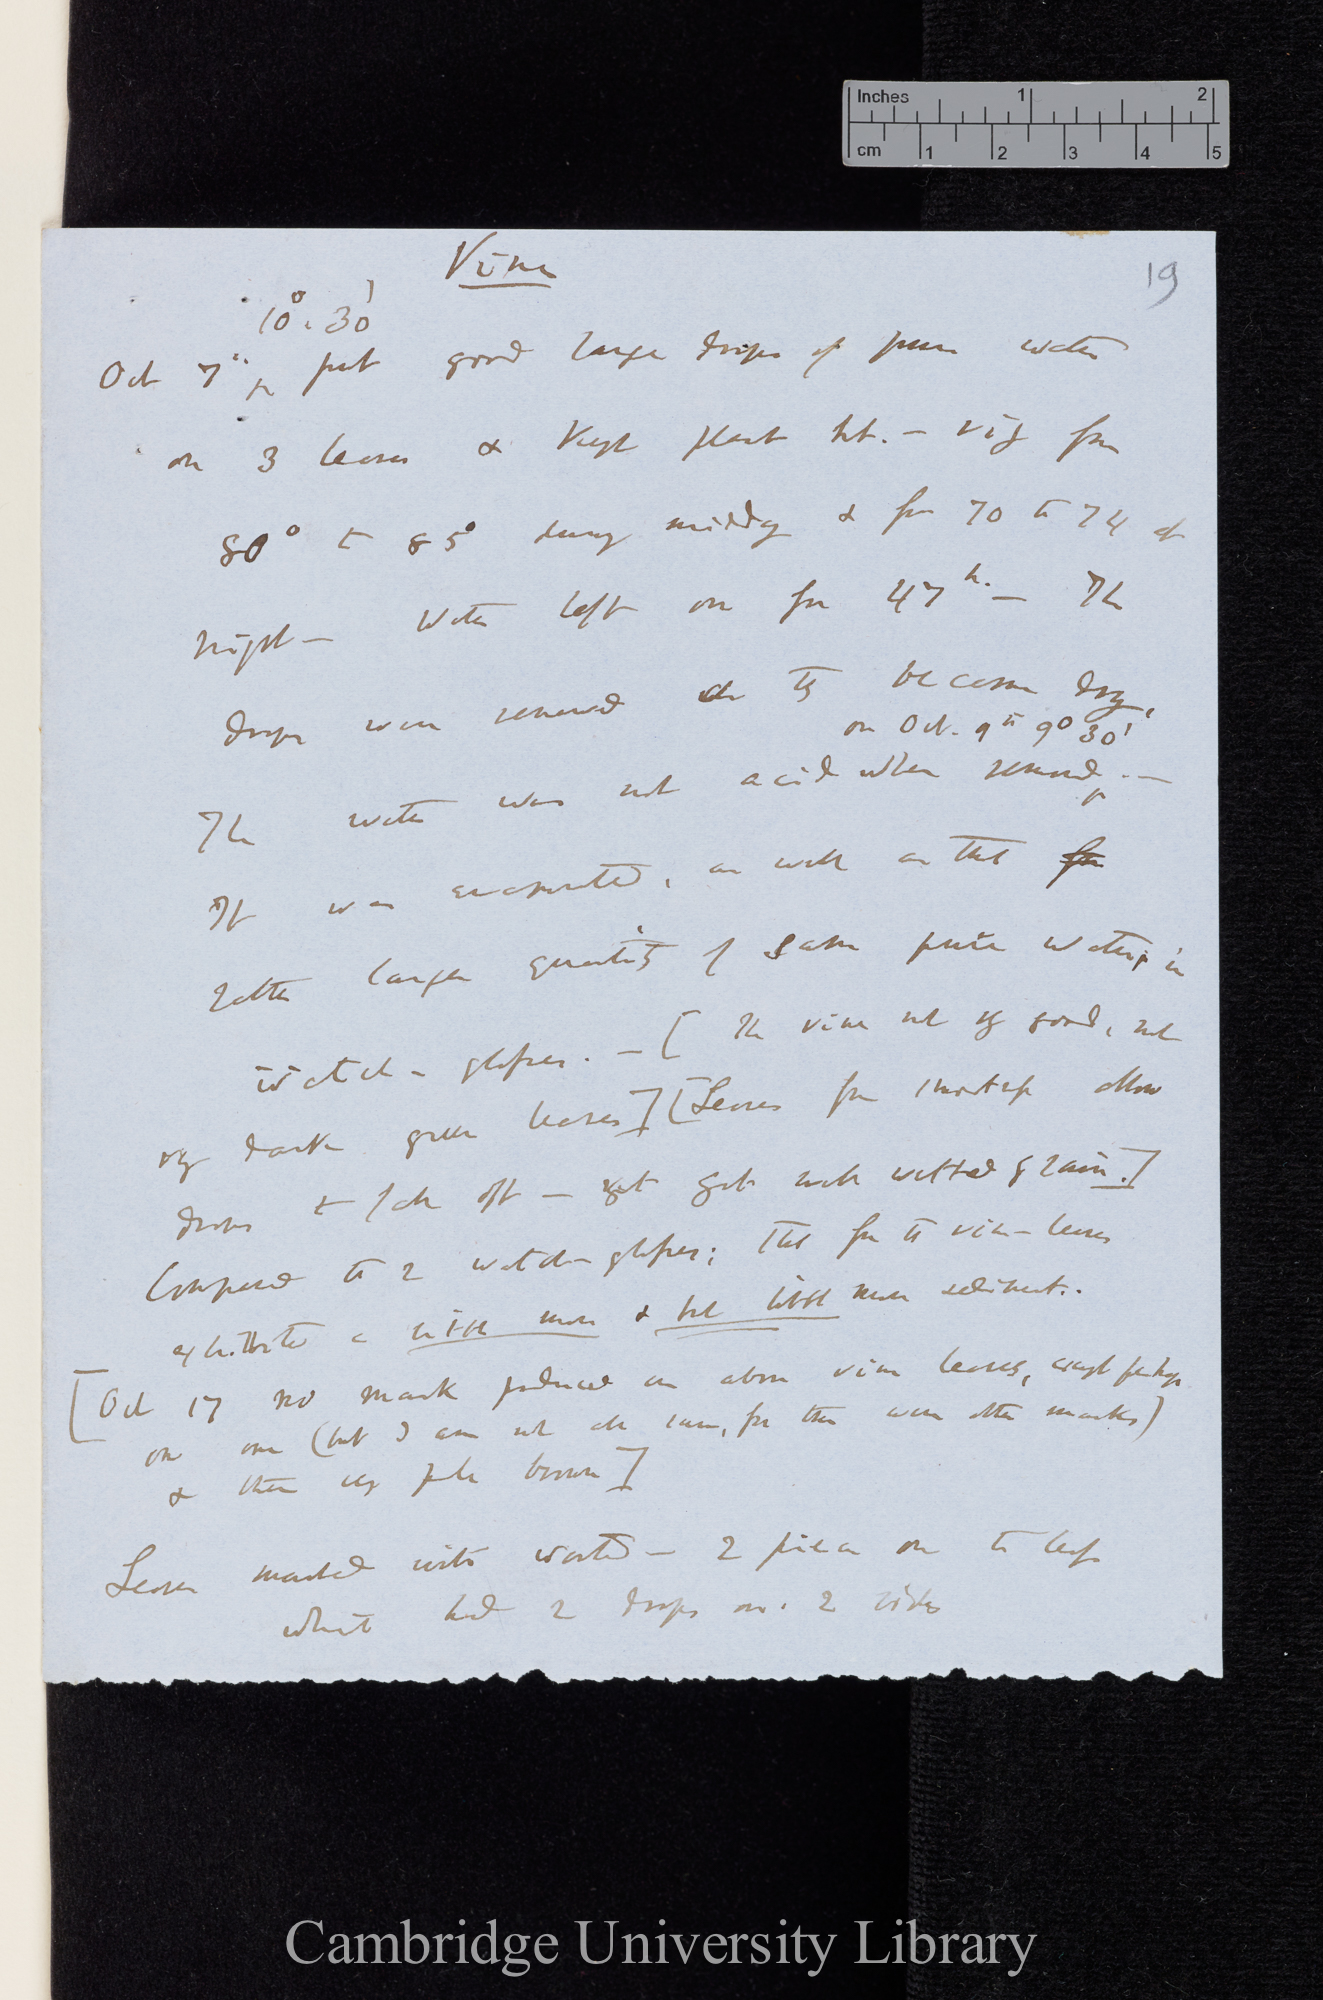 Inches 1 2
cm 1 2 3 4 5
Vine
19
10°. 30'
Oct 7th, put good large drops of pure water
on 3 leaves & kept plant hot. — viz from
80° to 85° during midday & from 70 to 74 at
night — Water left on for 47h. — The
drops were renewed as they became dry,
on Oct. 9th 9° 30'
The water was not acid when removed. —
It was evaporated, as well as that
rather larger quantity of same pure water, in
watch-glasses. — [The vine not vy good, not
vy dark green leaves] [Leaves from allow
drops to roll off — yet get well wetted by rain.]
Compared the 2 watch-glasses; that from the vine-leaves
exhibited a little more & but little more sediment.
[Oct 17 no mark produced on above vine leaves, except perhaps
on one (but I am not at all sure, for there were other marks)
& then very pale brown]
Leaves marked with worsted — 2 pieces on the leaf
which had 2 drops on. 2 sides
Cambridge University Library